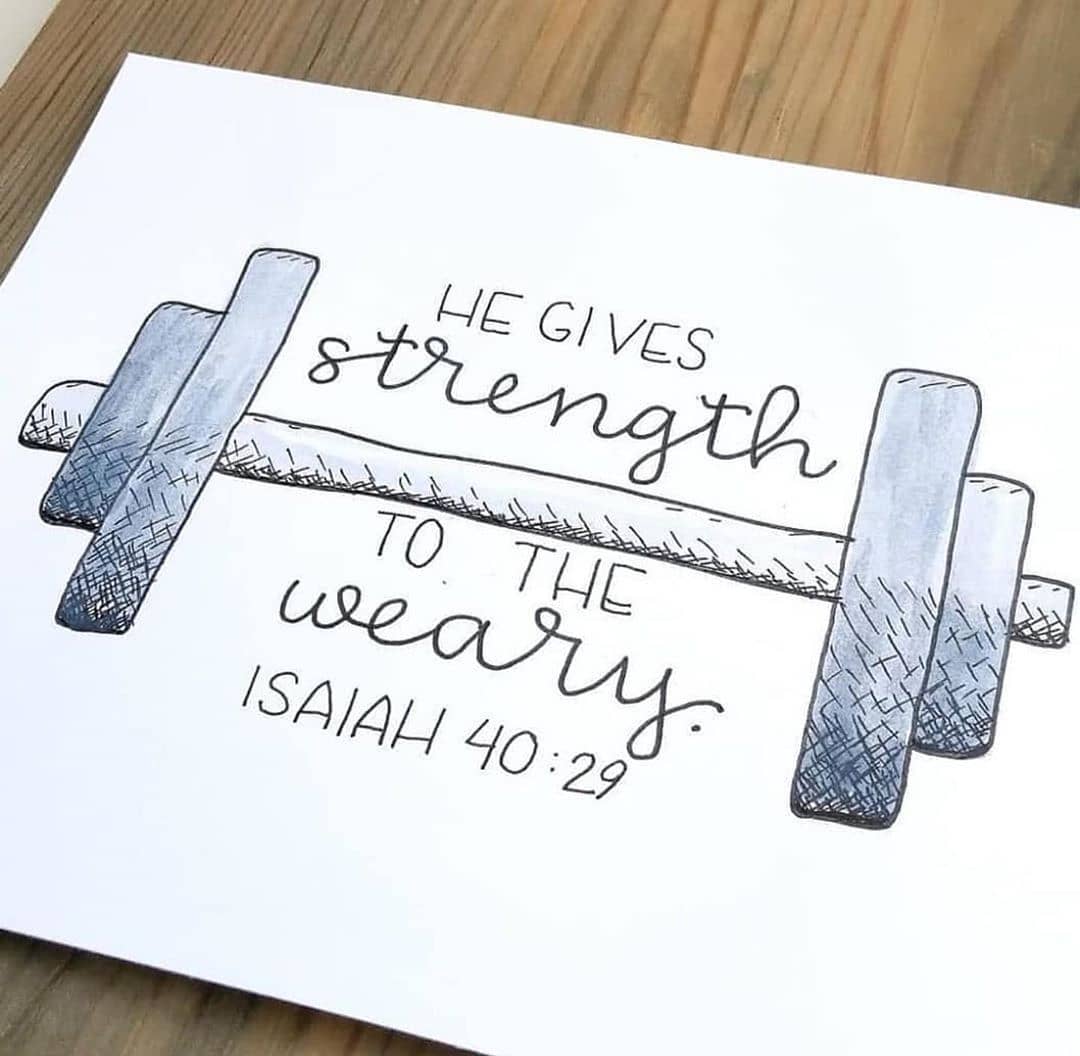 HE GIVES
strength
TO THE
weary.
ISAIAH 40:29